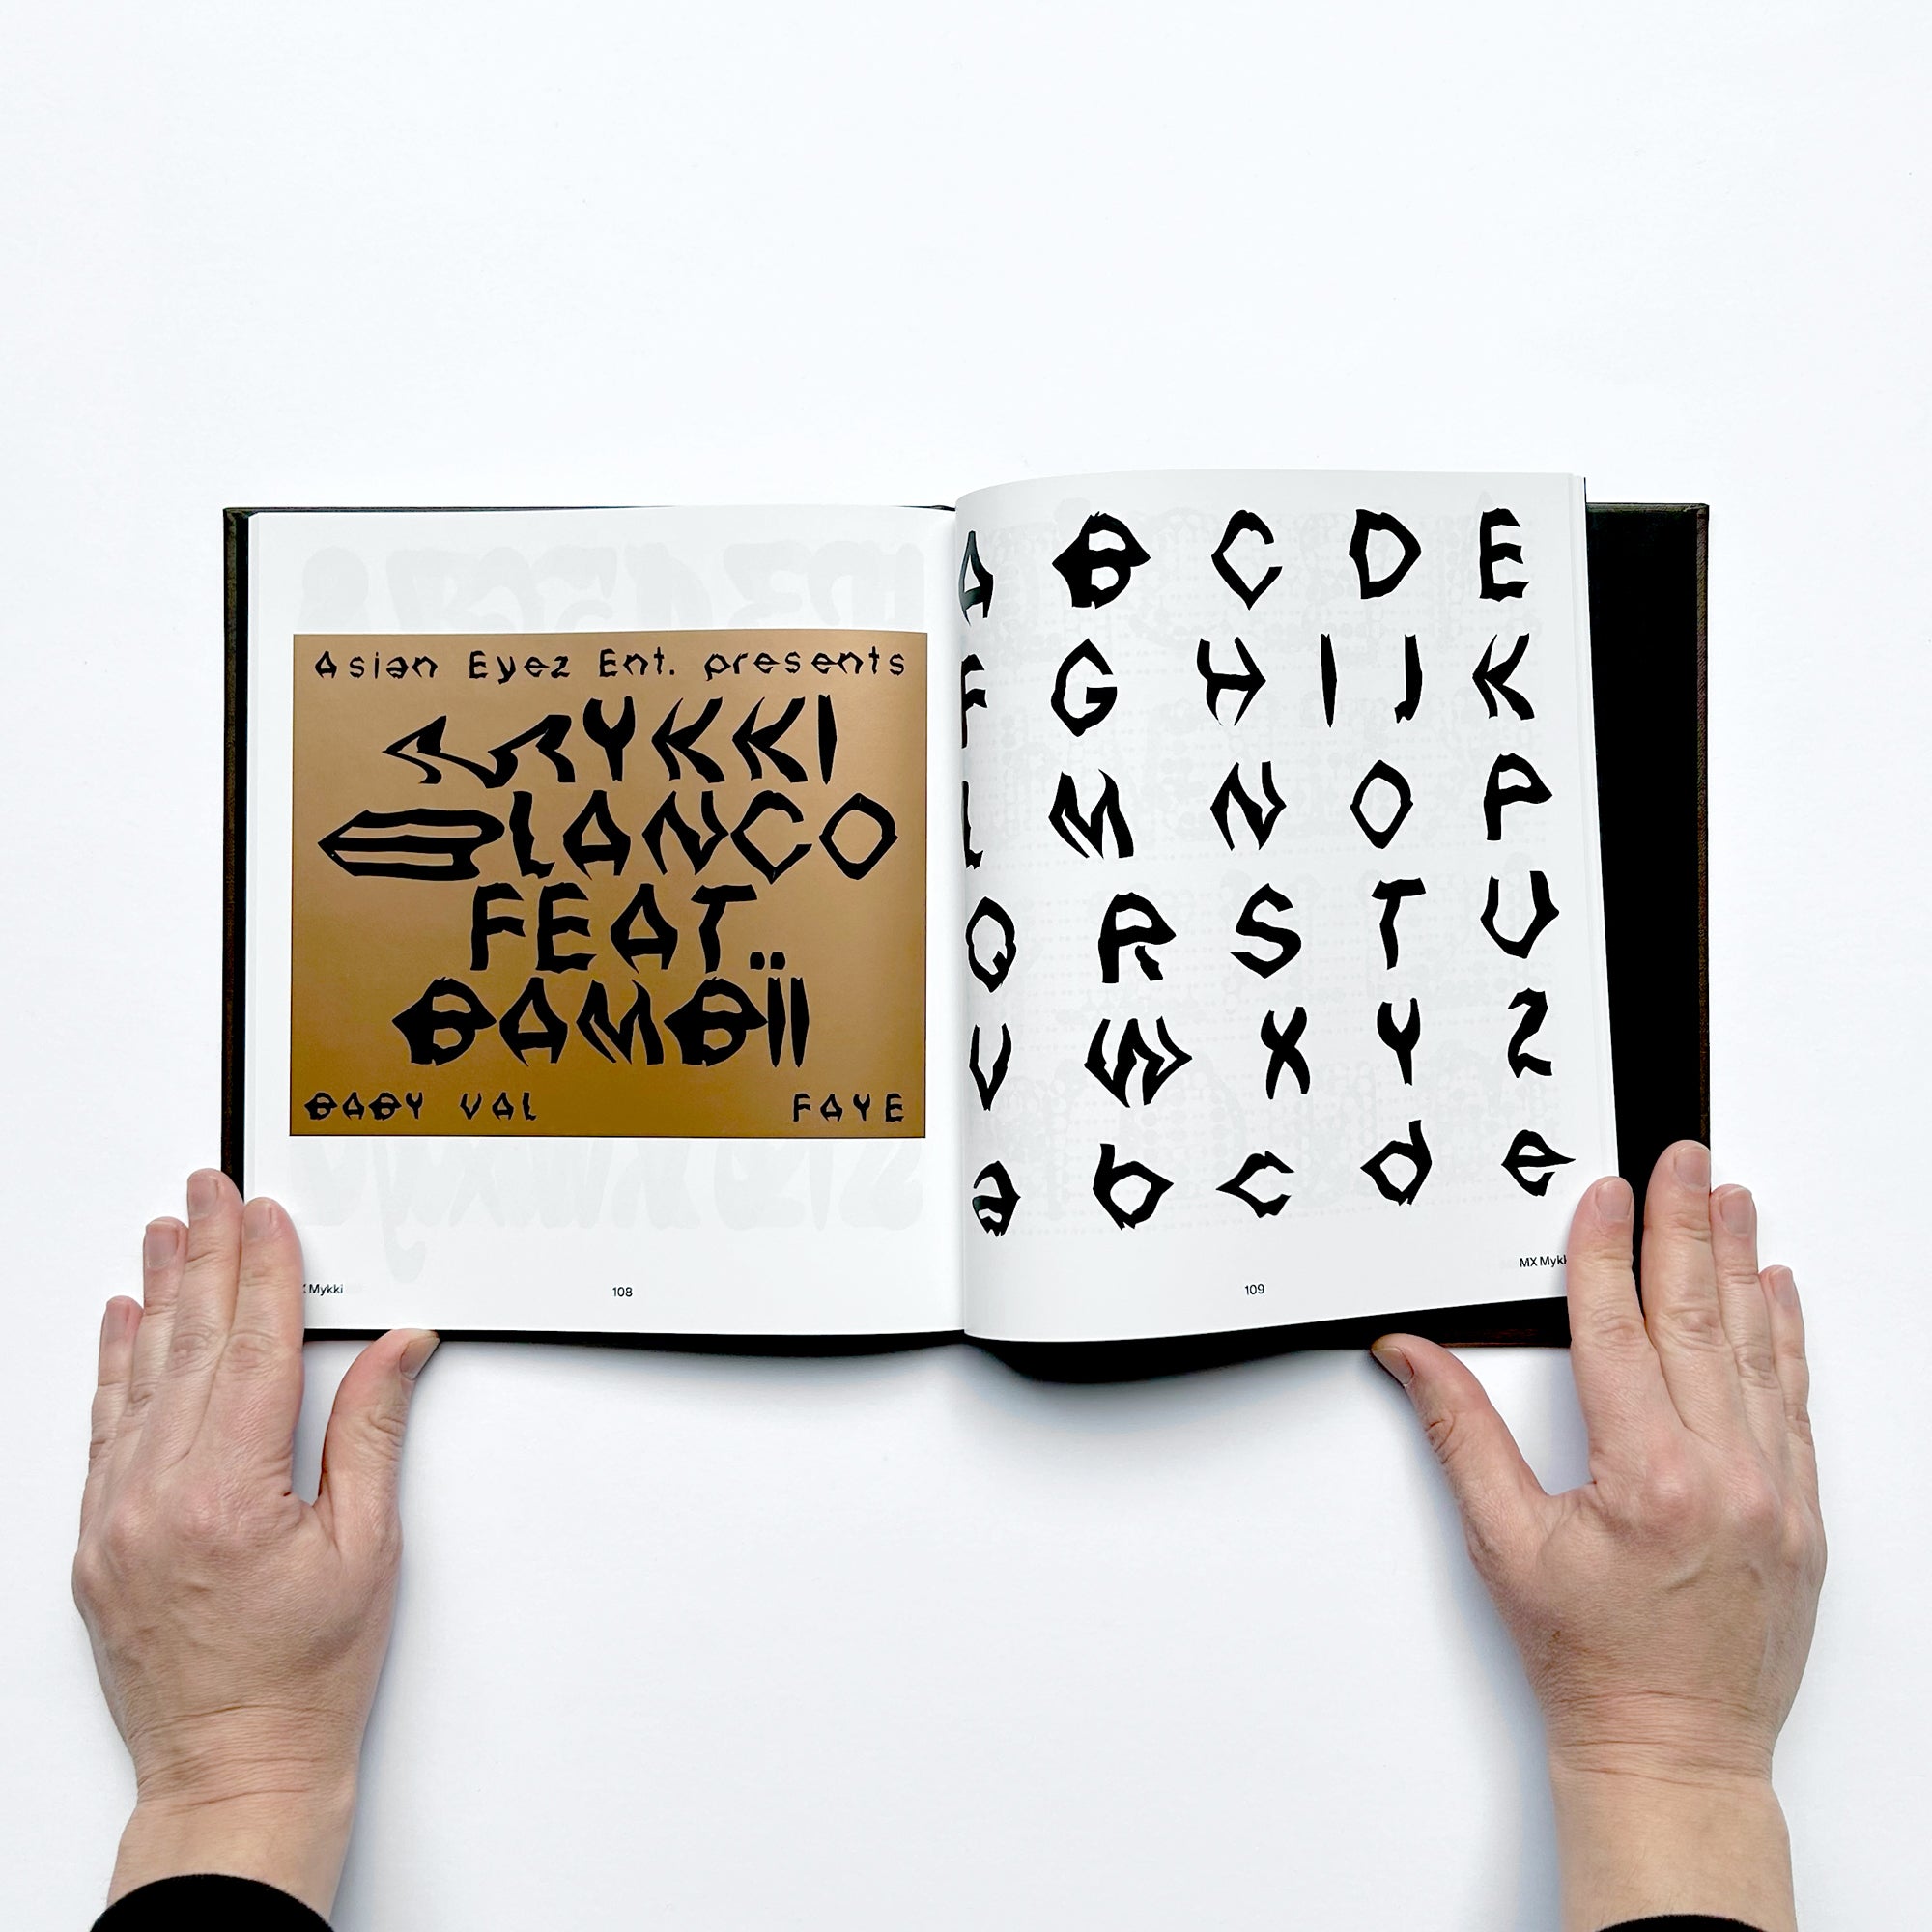 Asian Eyez Ent. presents
MYKKI
BLANCO
FEAT.
BAMBÏÏ
BABY VAL FAYE
Mykki 108
A B C D E
F G H I J K
L M N O P
Q R S T U
V W X Y Z
a b c d e
109 MX Mykk